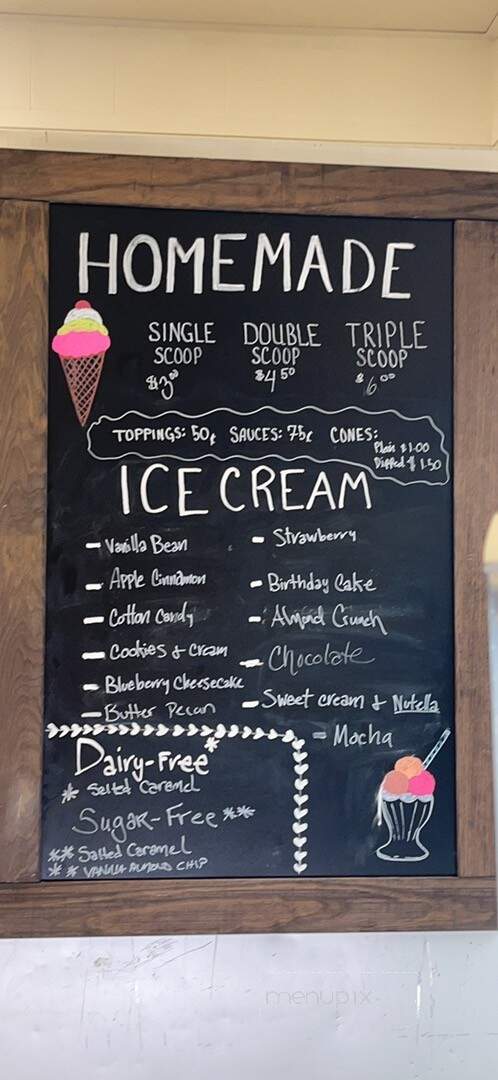 HOMEMADE
SINGLE SCOOP $3.00
DOUBLE SCOOP $4.50
TRIPLE SCOOP $6.00
TOPPINGS: 50¢ SAUCES: 75¢ CONES:
Plain $1.00
Dipped $1.50
ICE CREAM
- Vanilla Bean
- Apple Cinnamon
- Cotton Candy
- Cookies & Cream
- Blueberry Cheesecake
- Butter Pecan
- Strawberry
- Birthday Cake
- Almond Crunch
- Chocolate
- Sweet cream & Nutella
- Mocha
Dairy-Free*
* Salted Caramel
Sugar-Free **
** Salted Caramel
** VANILLA ALMOND CHIP
menupix